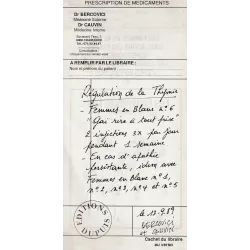 PRESCRIPTION DE MEDICAMENTS
Dr BERCOVICI
Médecine Externe
Dr CAUVIN
Médecine Interne
A REMPLIR PAR LE LIBRAIRE :
Nom et prénom du patient :
Régulation de la Thymie
- Femmes en Blanc n° 6
"Qui rira à tout prise"
2 injections 3x par jour
pendant 1 semaine
- En cas d'apathie
persistante, idem avec
Femmes en Blanc n° 1,
n° 2, n° 3, n° 4 et n° 5
EDITIONS DUPUIS
le 13.9.89
BERCOVICI
et CAUVIN
Cachet du libraire
au verso